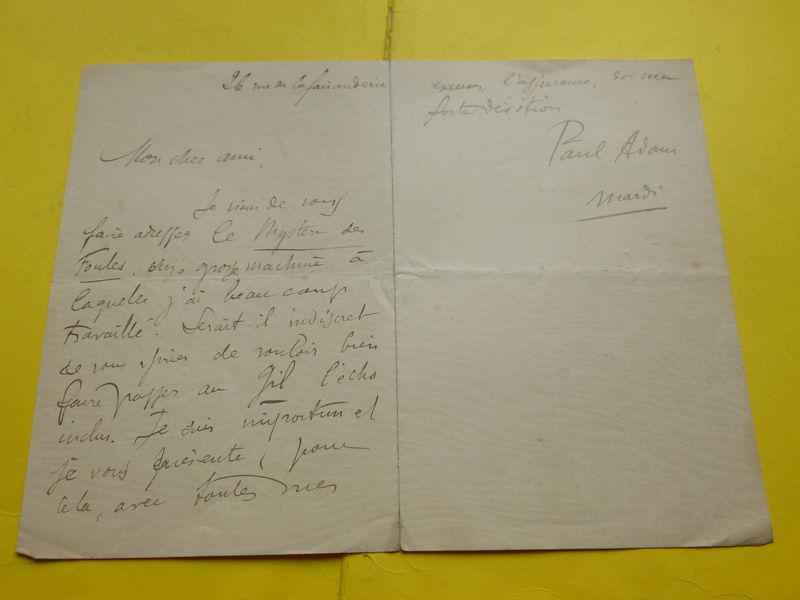 26 rue de la faisanderie
Mon cher ami,
Je viens de vous
faire adresser Le Mystère des
Foules, grosse machine à
laquelle j'ai beaucoup
travaillé. Serait-il indiscret
de vous prier de vouloir bien
faire passer au Gil l'écho
inclus. Je suis importun et
je vous présente, pour
cela, avec toutes mes
excuses, l'assurance, de ma
forte dévotion
Paul Adam
Mardi